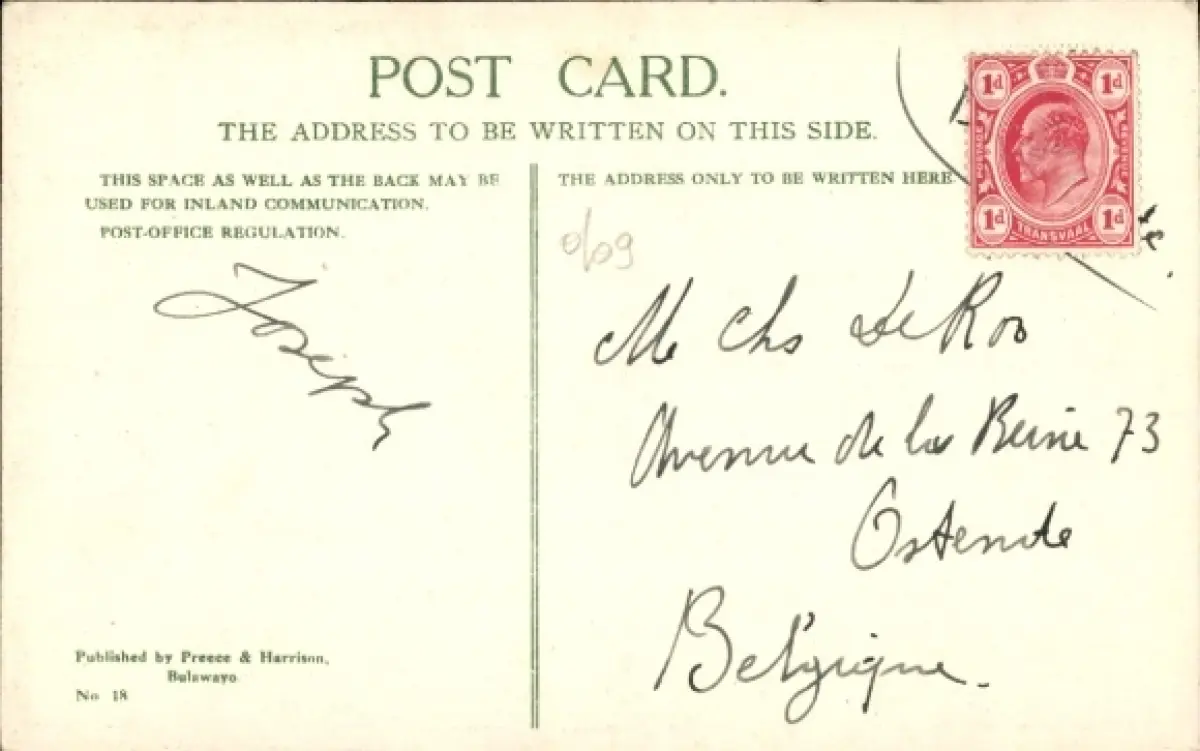 POST CARD.
THE ADDRESS TO BE WRITTEN ON THIS SIDE.
THIS SPACE AS WELL AS THE BACK MAY BE
USED FOR INLAND COMMUNICATION.
POST-OFFICE REGULATION.
THE ADDRESS ONLY TO BE WRITTEN HERE
1d 1d
POSTAGE REVENUE
1d 1d
TRANSVAAL
Joseph
M Chs De Roo
Avenue de la Reine 73
Ostende
Belgique.
Published by Preece & Harrison,
Bulawayo
No 18